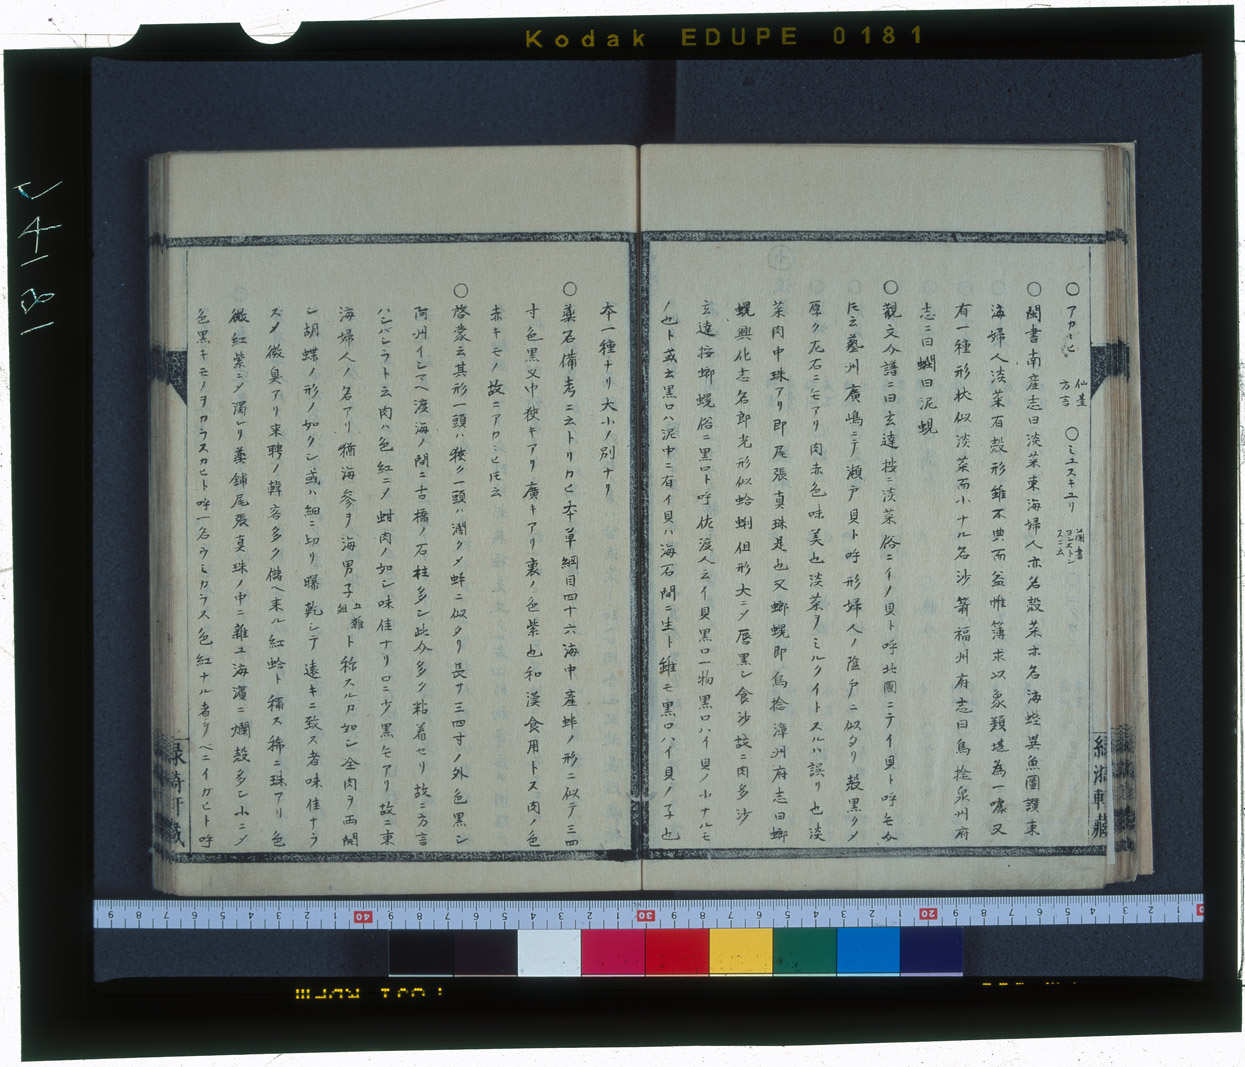 Kodak EDUPE 0181
○アカヽヒ 仙臺方言 ○ミユスキユリ
○閩書南産志曰淡菜東海婦人亦名殻菜亦名海 異魚圖讚東
海婦人淡菜有殻形雖不典而益帷簿求以象類堪為一噱又
有一種形状似淡菜而小ナル名沙箒福州府志曰烏捻泉州府
志ニ曰 曰泥蜆
○觀文介譜ニ曰玄達按ニ淡菜俗ニイノ貝ト呼北國ニテイ貝ト呼 介
氏云藝州廣嶋ニテ瀬戸貝ト呼形婦人ノ陰戸ニ似タリ殻黒クメ
厚ク死石ニモアリ肉赤色味美也淡菜ヲミルクイトスルハ誤リ也淡
菜肉中珠アリ即尾張真珠是也又螂蜆即烏捻漳州府志曰螂
蜆興化志名郎光形似蛤蜊但形大ニメ唇黒シ食沙故ニ肉多沙
玄達按螂蜆俗ニ黒口ト呼佐渡人云イ貝黒口一物黒口ハイ貝ノ小ナルモ
ノ也ト或云黒口ハ泥中ニ有イ貝ハ海石間ニ生ト雖モ黒口ハイ貝ノ子也
本一種ナリ大小ノ別ナリ
○藥石備考ニ云トリカヒ本草綱目四十六海中産蚌ノ形ニ似テ三四
寸色黒又中狹キアリ廣キアリ裏ノ色紫也和漢食用トス肉ノ色
赤キモノ故ニアカヽヒ氏云
○啓蒙云其形一頭ハ狹ク一頭ハ濶クメ蚌ニ似タリ長サ三四寸ノ外色黒シ
阿州イシマヘ渡海ノ間ニ古橋ノ石柱多シ此介多ク粘着セリ故ニ方言
ハシバシラト云肉ハ色紅ニメ蚶肉ノ如シ味佳ナリ口ニ少黒毛アリ故ニ東
海婦人ノ名アリ猶海參ヲ海男子 五雜組 ト称スルカ如シ全肉ヲ両開
シ胡蝶ノ形ノ如クシ或ハ細ニ切リ曝乾シテ遠キニ致ス者味佳ナラ
スメ微臭アリ来聘ノ韓客多ク儲ヘ来ル紅蛤ト稱ス稀ニ珠アリ色
微紅紫ニメ濁レリ藥鋪尾張真珠ノ中ニ雜ユ海濱ニ爛殻多シ小ニメ
色黒キモノヲカラスカヒト呼一名ウミカラス色紅ナル者ヲベニイガヒト呼